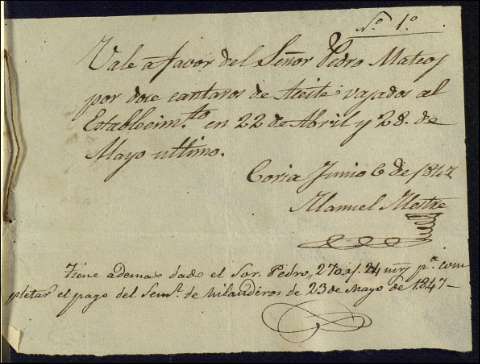 N.º 1.º
Vale a favor del Señor Pedro Mateos
por doce cantaros de Aceite vajados al
Establecim.to en 22 de Abril y 28 de
Mayo ultimo.
Coria Junio 6 de 1842
Manuel Mestre
Tiene ademas dado el Sor. Pedro, 270 24 mrs p.a com
pletar el pago del de hilanderos de 23 de Mayo de 1847